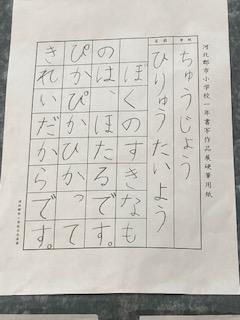 河北郡市小学校一年書写作品展硬筆用紙
学校
ちゅうじょう
名前
ひりゅう たいよう
ぼくのすきなも
のは、ほたるです。
ぴかぴかひかって
きれいだからです。